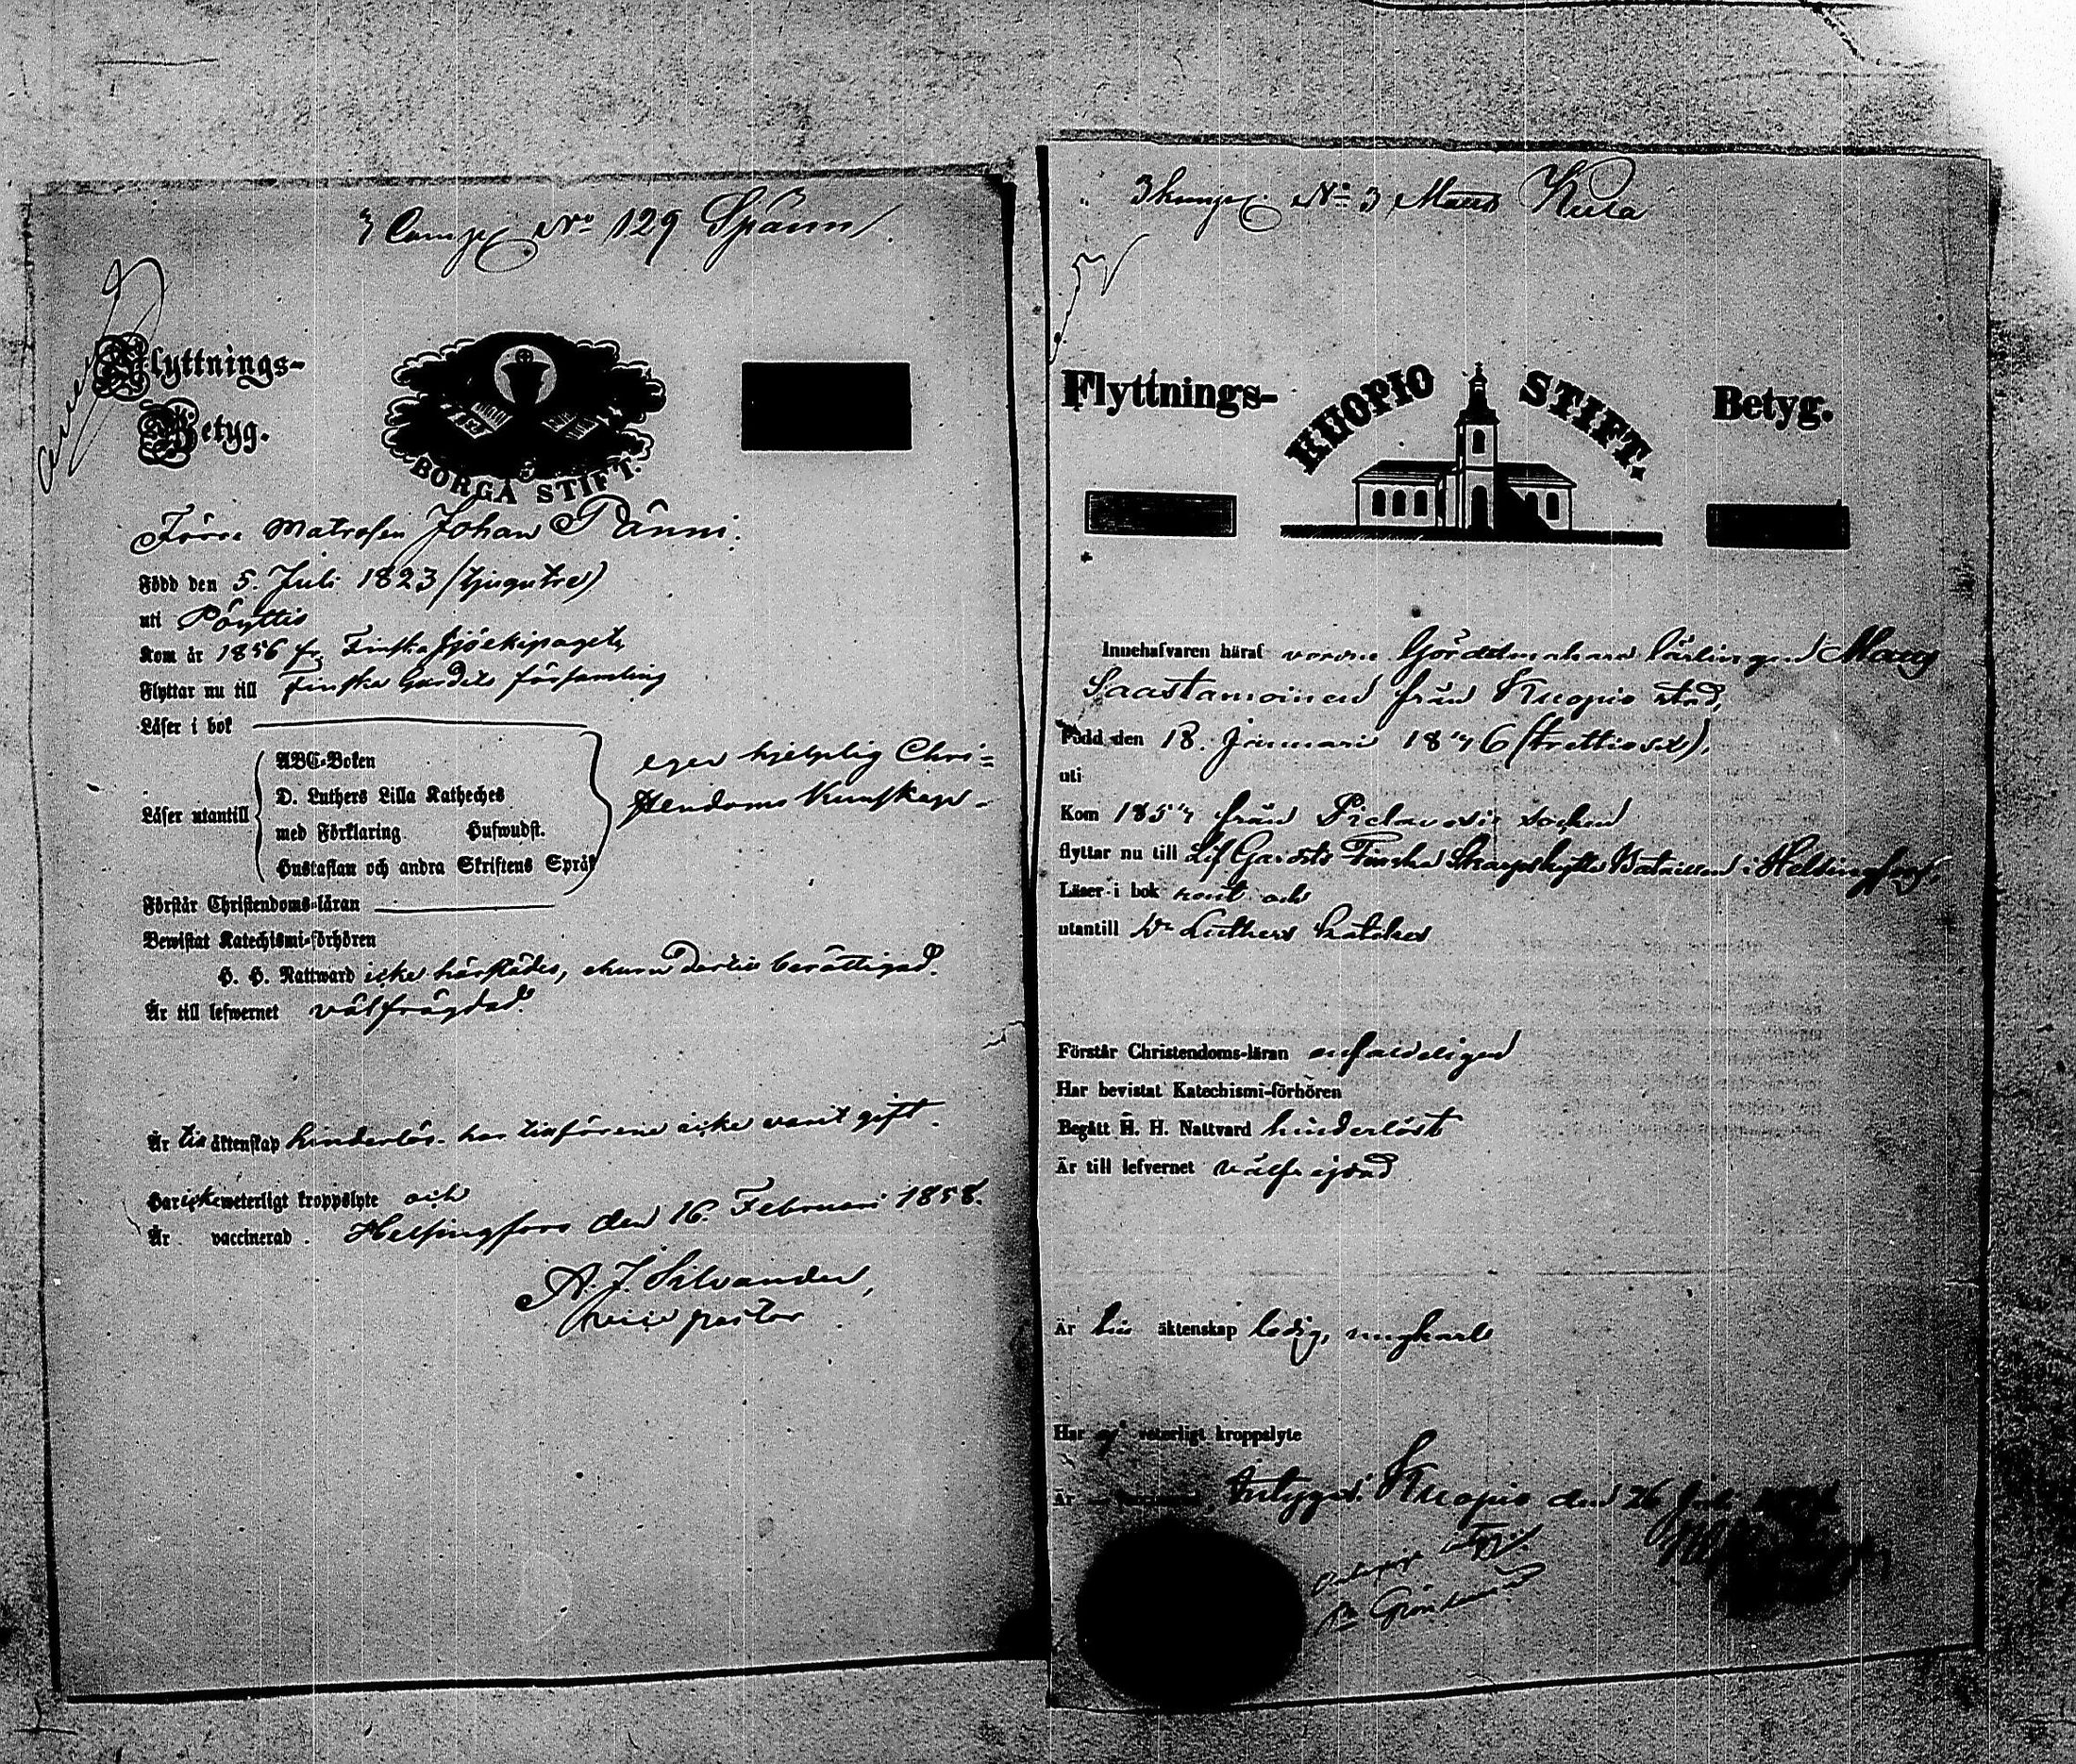 3 Comp. No 129 Spänn.
Flyttnings-
Betyg.
BORGÅ STIFT.
Förre Matrosen Johan Pänni.
Född den 5. Juli 1823 (tjugutre)
uti Pöyttis
Kom år 1856 fr. Finska Sjöekipaget,
Flyttar nu till Finska Gardets församling
Läser i bok
ABC-Boken
D. Luthers Lilla Katheches
Läser utantill
med Förklaring. Hufwudst.
Hustaflan och andra Skriftens Språk
eger hjelplig Chri-
stendoms kunskap.
Förstår Christendoms-läran
Bewistat Katechismi-förhören
H. H. Nattward icke härstädes, ehuru dertill berättigad.
Är till lefwernet välfrägdad.
Är till äktenskap hinderlös. har tillförene icke varit gift.
Har icke weterligt kroppslyte och
Är vaccinerad. Helsingfors den 16. Februari 1858.
A. J. Silvander,
vice pastor
3 komp. No 3 Maus Kula
Flyttnings- KUOPIO STIFT. Betyg.
Innehafvaren häraf Lärlingen Maus
Saastamoinen från Kuopio stad,
Född den 18. Januari 1836 (trettiosex),
uti
Kom från Pielavesi socken
flyttar nu till Lif Gardets Finska Skarpskytte Bataillon i Helsingfors,
Läser i bok rent och
utantill Dr Luthers katekes
Förstår Christendoms-läran enfaldeligen
Har bevistat Katechismi-förhören
Begått H. H. Nattvard hinderlöst
Är till lefvernet välfrejdad
Är till äktenskap ledig, ungkarl
Har ej veterligt kroppslyte
Är Intygas. Kuopio den 26